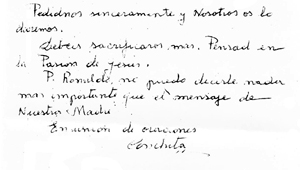 Pedidnos sinceramente y Nosotros os lo
daremos.
Debeis sacrificaros mas. Pensad en
la Pasion de Jesus.
P. Ronaldo, no puedo decirle nada
mas importante que el mensaje de
Nuestra Madre
En union de oraciones
Conchita